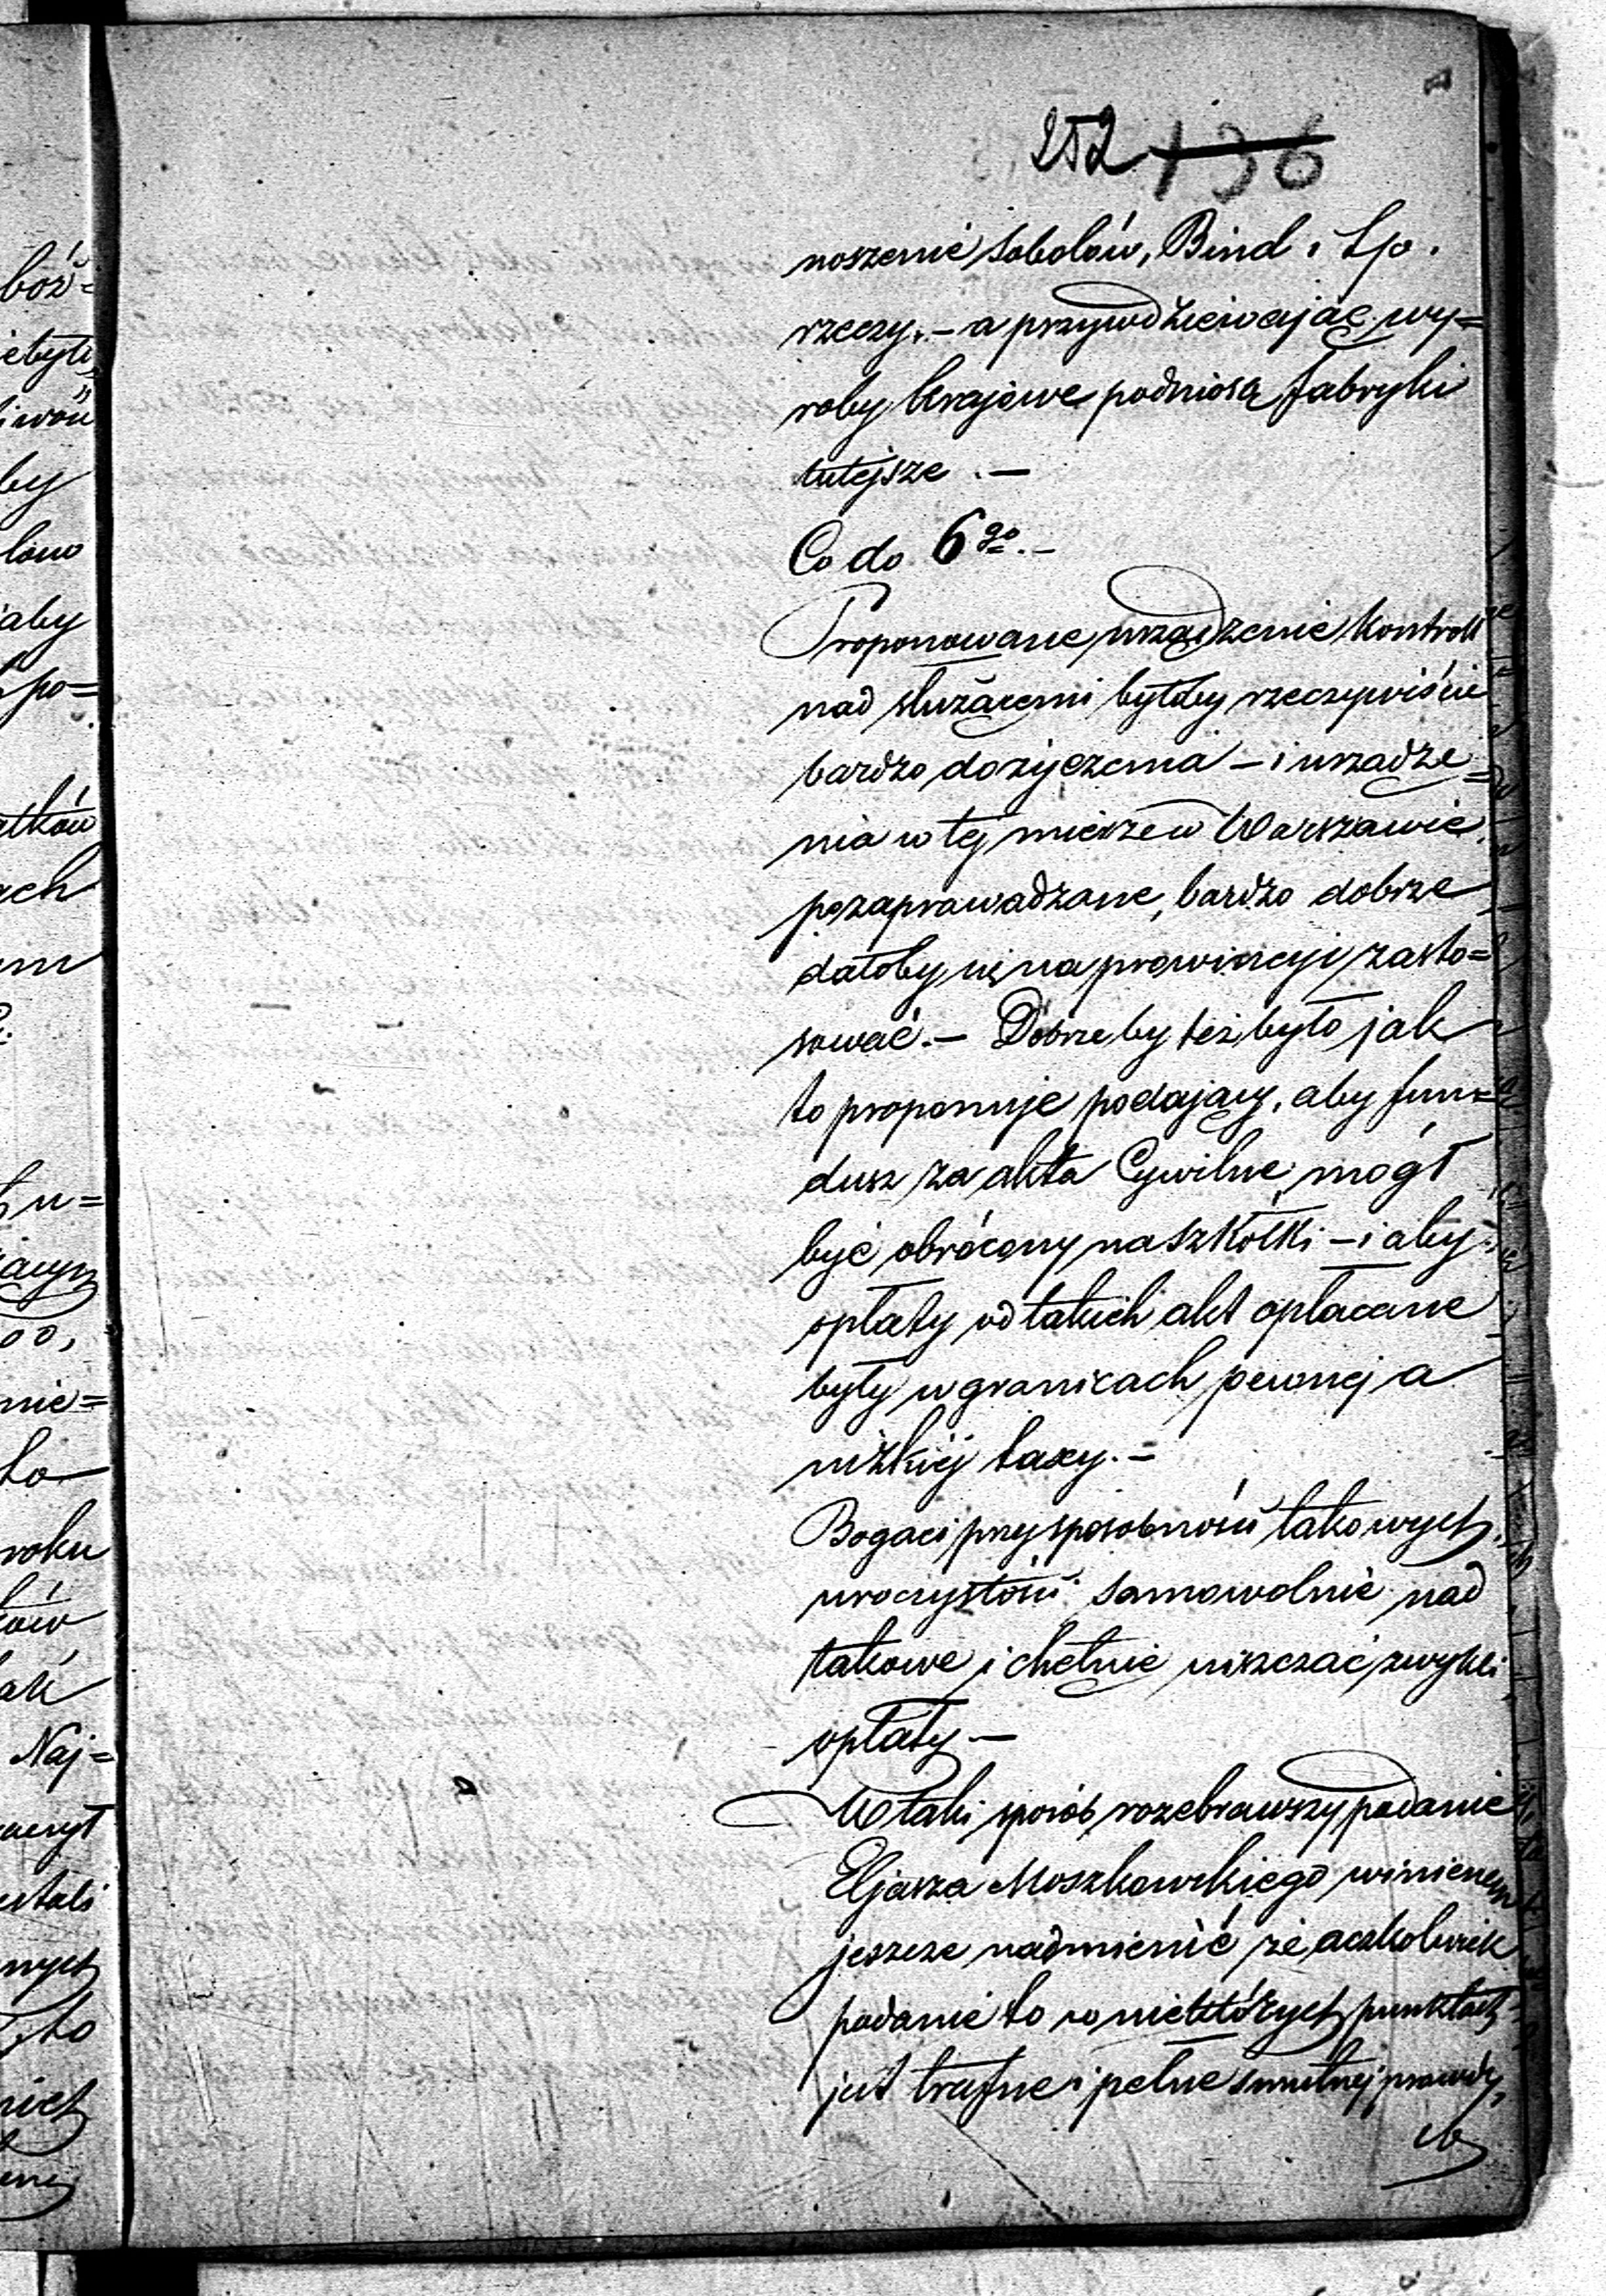 252 136
noszenie sobolów, Bind i t.p.
rzeczy. – a przywdziewając wy=
roby krajowe podniosą fabryki
tutejsze. –
Co do 6go. –
Proponowane urządzenie kontroli
nad służącemi byłoby rzeczywiście
bardzo dozyczenia – i urządze=
nia w tej mierze w Warszawie
pozaprowadzane, bardzo dobrze
dałoby się na prowincyi zasto=
sować. – Dobrze by też było jak
to proponuje podający, aby fun=
dusz za akta Cywilne mógł
być obrócony na szkółki – i aby
opłaty od takich akt opłacane
były w granicach pewnej a
nizkiéj taxy. –
Bogaci przy sposobności takowych
uroczystości samowolnie nad
takowe i chętnie uiszczać zwykli
opłaty –
W taki sposób rozebrawszy podanie
Eljasza Moszkowskiego winienem
jeszcze nadmienić że aczkolwiek
podanie to w niektórych punktach
jest trafne i pełne smutnej prawdy,
bóż=
by
aby
po=
ach
u=
00,
nie=
to
roku
ców
Naj=
nych
to